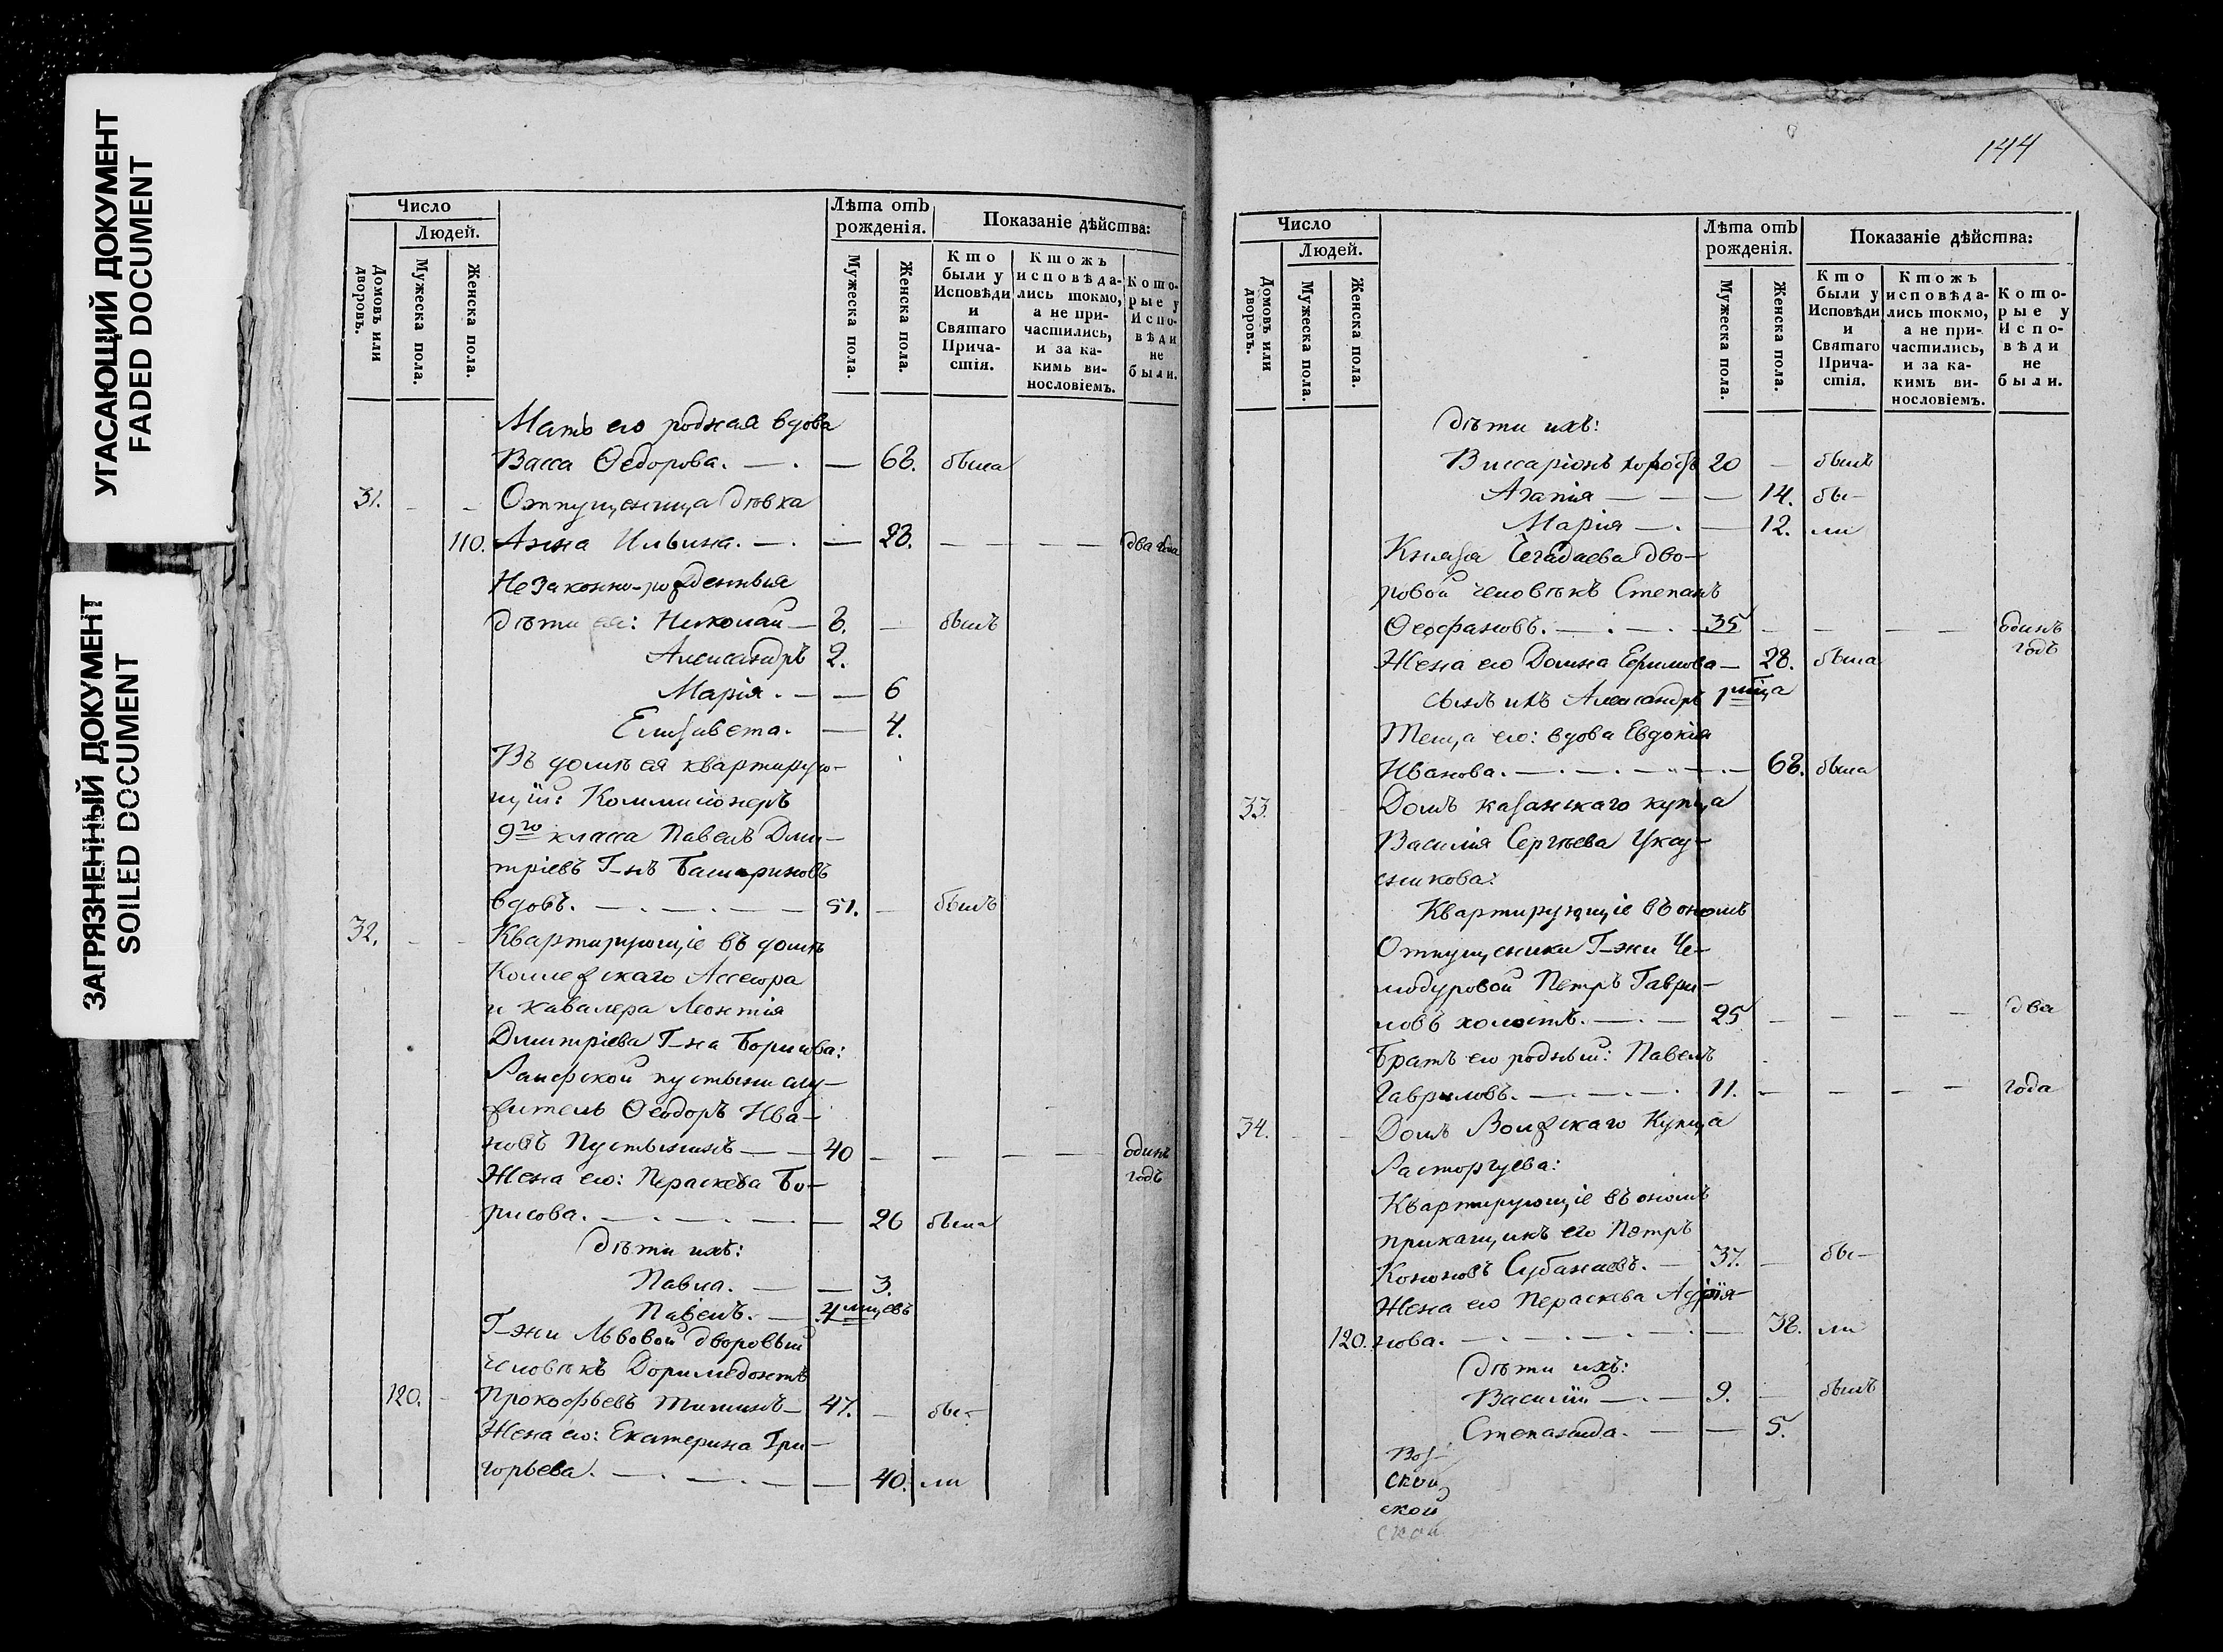 УГАСАЮЩИЙ ДОКУМЕНТ
FADED DOCUMENT
ЗАГРЯЗНЕННЫЙ ДОКУМЕНТ
SOILED DOCUMENT
Число
Людей.
Домовъ или дворовъ.
Мужеска пола.
Женска пола.
Лѣта отъ рожденія.
Мужеска пола.
Женска пола.
Показаніе дѣйства:
Кто были у Исповѣди и Святаго Причастія.
Ктожъ исповѣдались токмо, а не причастились, и за какимъ винословіемъ.
Которые у Исповѣди не были.
Мать его родная вдова
Васса Ѳедорова. — . — 68. была
31. - - Отпущеница дѣвка
110. Анна Ильина. — . — 28. — — — два года
Незаконно-рожденныя
дѣти ея: Николай — 8. — былъ
Александръ 2.
Марія . — — 6
Елисавета. — 4.
Въ домѣ ея квартирую-
щій: Коммисіонеръ
9го класса Павелъ Дми-
тріевъ Г-нъ Башариновъ
вдовъ. — . — . — — 51. — былъ
32. - - Квартирующіе въ домѣ
Коллежскаго Ассесора
и Кавалера Леонтія
Дмитріева Г-на Борисова:
Раифской пустыни слу-
житель Ѳеодоръ Ива-
новъ Пустынинъ — — 40 — — — — одинъ
годъ
Жена его: Параскева Бо-
рисова. — . — . — — 26 была
дѣти ихъ:
Павла. — — 3.
Павелъ. — 4 мцевъ
Г-жи Львовой дворовый
человѣкъ Доримедонтъ
120. - Прокофьевъ Титинъ — 47. — бы-
Жена его: Екатерина Гри-
горьева. — . — . — — 40. ли
144
Число
Людей.
Домовъ или дворовъ.
Мужеска пола.
Женска пола.
Лѣта отъ рожденія.
Мужеска пола.
Женска пола.
Показаніе дѣйства:
Кто были у Исповѣди и Святаго Причастія.
Ктожъ исповѣдались токмо, а не причастились, и за какимъ винословіемъ.
Которые у Исповѣди не были.
дѣти ихъ:
Виссаріонъ 20 — былъ
Агапія — — — 14. бы-
Марія — . — 12. ли
Князя Чегадаева дво-
ровой человѣкъ Степанъ
Ѳеофановъ. — . — . 35 — — — — одинъ
годъ
Жена его Домна Ефимова — 28. была
сынъ ихъ Александръ 1 мца
Теща его: вдова Евдокія
Иванова. — . — . — . — 68. была
33. Домъ казанскаго купца
Василія Сергѣева Уксу-
сникова:
Квартирующіе въ ономъ
Отпущеники Г-жи Че-
модуровой Петръ Гаври-
ловъ холостъ. — . — 25 — — — — два
Братъ его родный: Павелъ
Гавриловъ. — . — . — . 11. — — — — года
34. - - Домъ Вольскаго Купца
Расторгуева:
Квартирующіе въ ономъ
прикащикъ его Петръ
Кононовъ Субанаевъ. — 37. — бы-
Жена его Параскева Адрія-
120. нова. — . — . — . — . — 38. ли
дѣти ихъ:
Василій — . — 9. — былъ
Степанида. — — 5.
Воз-
ской
ской
ской